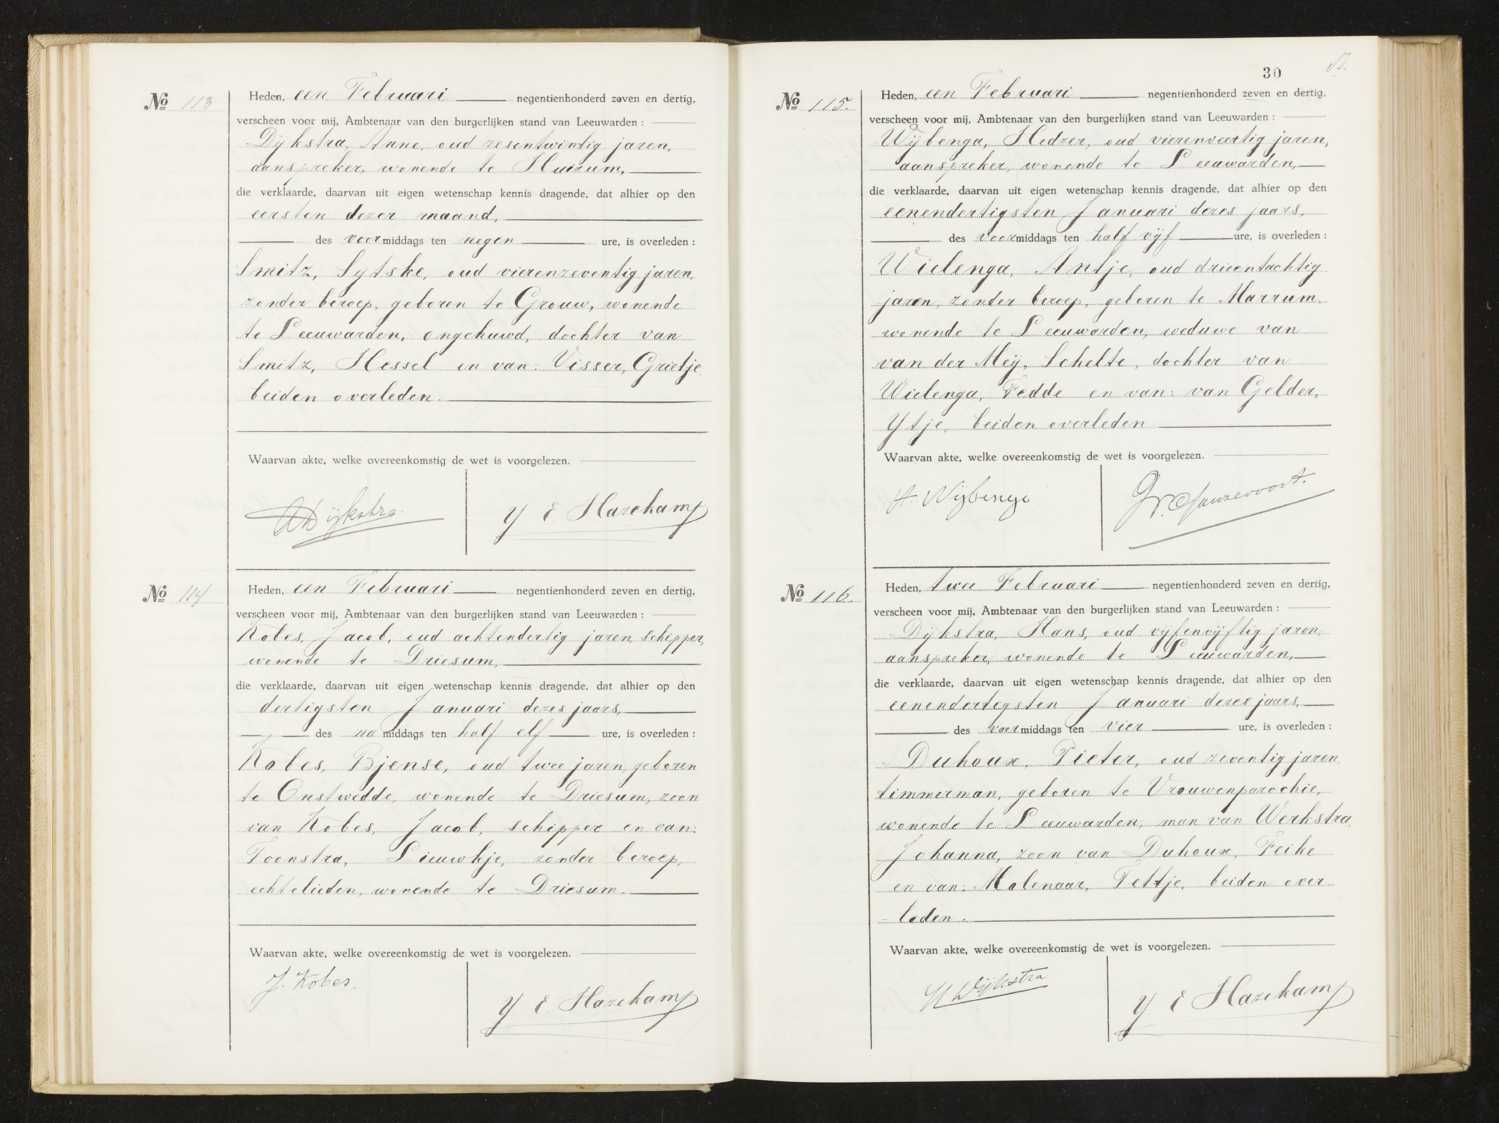 No 113
Heden, een Februari negentienhonderd zeven en dertig,
verscheen voor mij, Ambtenaar van den burgerlijken stand van Leeuwarden :
Dijkstra, Aane, oud zesentwintig jaren,
aanspreker, wonende te Huizum,
die verklaarde, daarvan uit eigen wetenschap kennis dragende, dat alhier op den
eersten dezer maand,
des voormiddags ten negen ure, is overleden :
Smitz, Sytske, oud vierenzeventig jaren,
zonder beroep, geboren te Grouw, wonende
te Leeuwarden, ongehuwd, dochter van
Smitz, Hessel en van: Visser, Grietje
beiden overleden.
Waarvan akte, welke overeenkomstig de wet is voorgelezen.
A Dijkstra
Y E Hazekamp
No 114
Heden, een Februari negentienhonderd zeven en dertig,
verscheen voor mij, Ambtenaar van den burgerlijken stand van Leeuwarden :
Kobes, Jacob, oud achtendertig jaren, schipper,
wonende te Driesum,
die verklaarde, daarvan uit eigen wetenschap kennis dragende, dat alhier op den
dertigsten Januari dezes jaars,
des na middags ten half elf ure, is overleden :
Kobes, Bjense, oud twee jaren, geboren
te Onstwedde, wonende te Driesum, zoon
van Kobes, Jacob, schipper en van:
Toenstra, Lieuwkje, zonder beroep,
echtelieden, wonende te Driesum.
Waarvan akte, welke overeenkomstig de wet is voorgelezen.
J. Kobes.
Y E Hazekamp
30
No 115.
Heden, een Februari negentienhonderd zeven en dertig,
verscheen voor mij, Ambtenaar van den burgerlijken stand van Leeuwarden :
Wijbenga, Hedzer, oud vierenveertig jaren,
aanspreker, wonende te Leeuwarden,
die verklaarde, daarvan uit eigen wetenschap kennis dragende, dat alhier op den
eenendertigsten Januari dezes jaars,
des voormiddags ten half vijf ure, is overleden :
Wielenga, Antje, oud drieentachtig
jaren, zonder beroep, geboren te Marrum,
wonende te Leeuwarden, weduwe van
van der Meij, Schelte, dochter van
Wielenga, Fedde en van: van Gelder,
Ytje, beiden overleden
Waarvan akte, welke overeenkomstig de wet is voorgelezen.
H Wijbenga
No 116.
Heden, twee Februari negentienhonderd zeven en dertig,
verscheen voor mij, Ambtenaar van den burgerlijken stand van Leeuwarden :
Dijkstra, Hans, oud vijfenvijftig jaren,
aanspreker, wonende te Leeuwarden,
die verklaarde, daarvan uit eigen wetenschap kennis dragende, dat alhier op den
eenendertigsten Januari dezes jaars,
des voormiddags ten vier ure, is overleden :
Duhoux, Pieter, oud zeventig jaren,
timmerman, geboren te Vrouwenparochie,
wonende te Leeuwarden, man van Werkstra,
Johanna, zoon van Duhoux, Feike
en van: Molenaar, Tettje, beiden over
leden.
Waarvan akte, welke overeenkomstig de wet is voorgelezen.
H Dijkstra
Y E Hazekamp